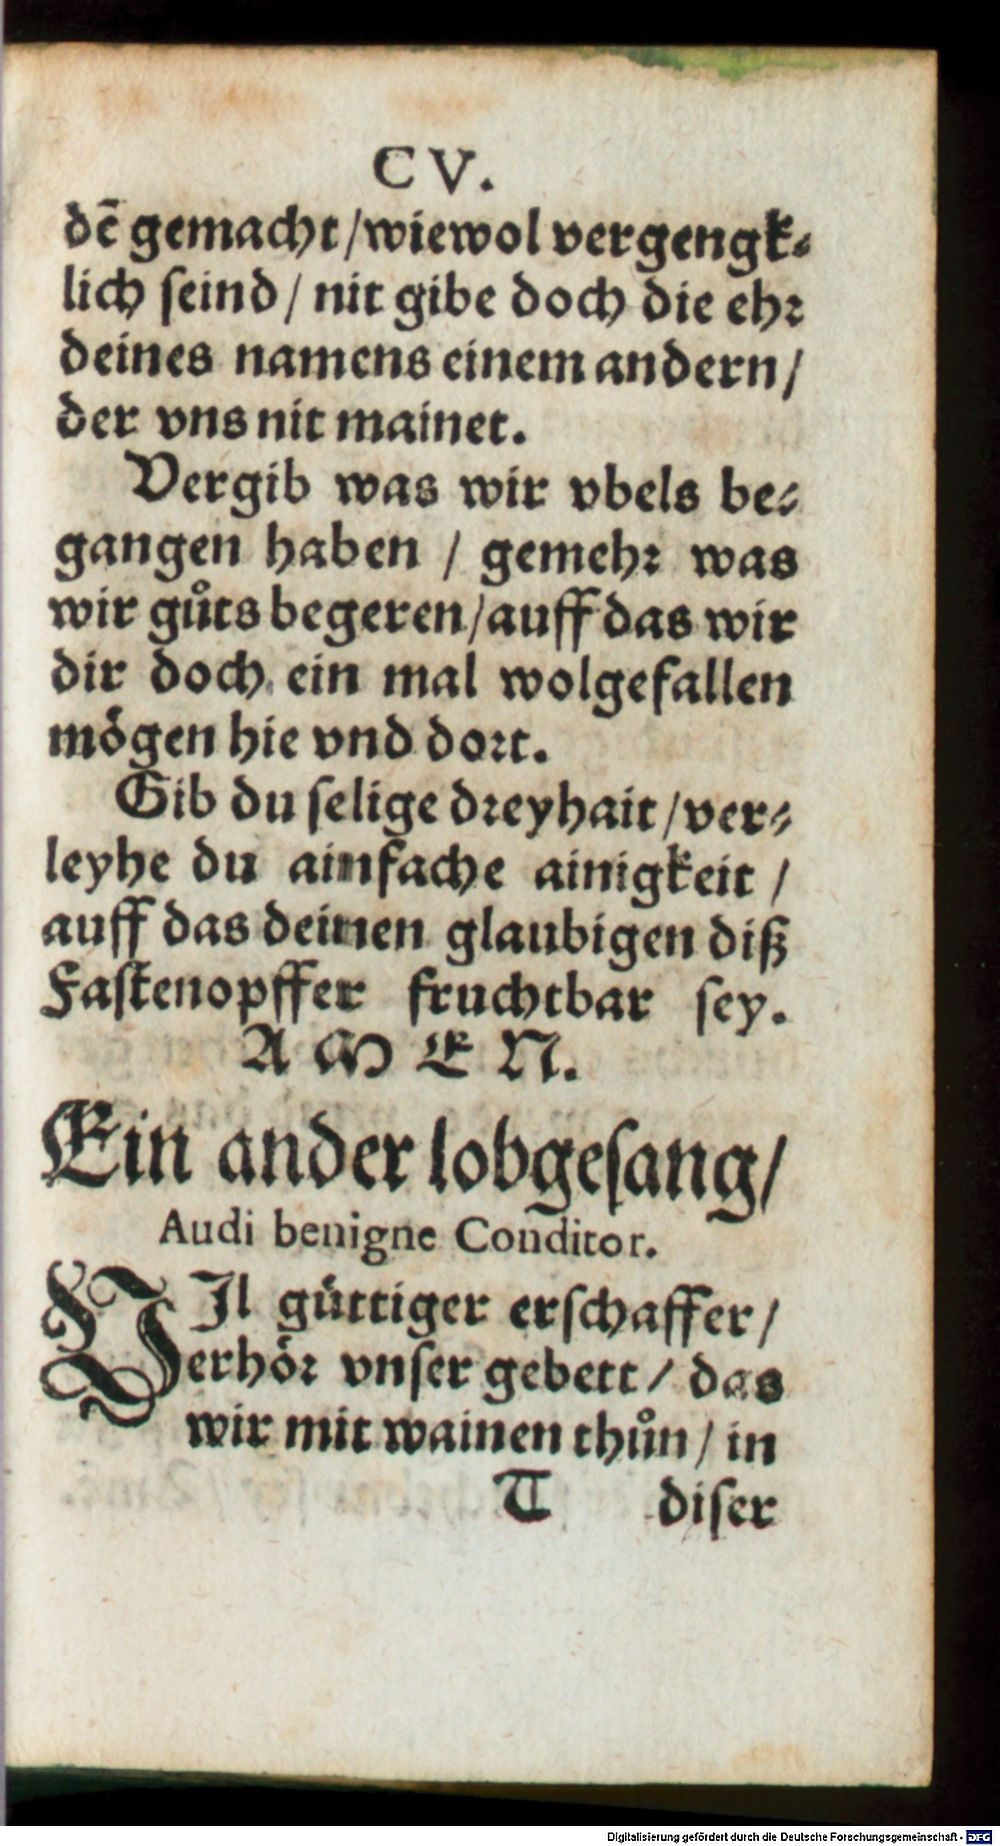 CV.
dē gemacht / wiewol vergengk⸗
lich seind / nit gibe doch die ehr
deines namens einem andern /
der vns nit mainet.
Vergib was wir vbels be⸗
gangen haben / gemehr was
wir gůts begeren / auff das wir
dir doch ein mal wolgefallen
mögen hie vnd dort.
Gib du selige dreyhait / ver⸗
leyhe du ainfache ainigkeit /
auff das deinen glaubigen diß
Fastenopffer fruchtbar sey.
AMEN.
Ein ander lobgesang /
Audi benigne Conditor.
VIl güttiger erschaffer /
erhör vnser gebett / das
wir mit wainen thůn / in
T diser
Digitalisierung gefördert durch die Deutsche Forschungsgemeinschaft - DFG